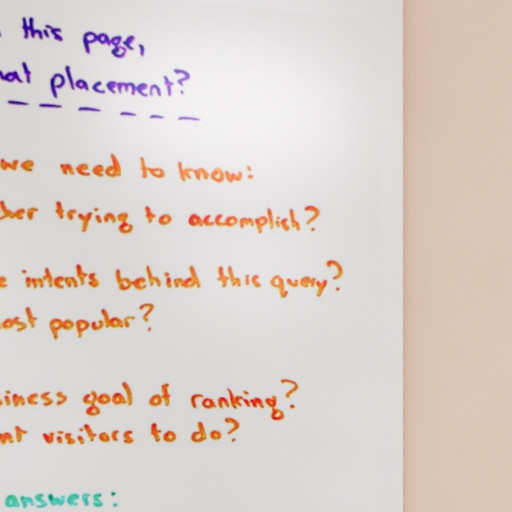 this page,
placement?
we need to know:
trying to accomplish?
intents behind this query?
popular?
goal of ranking?
visitors to do?
answers: